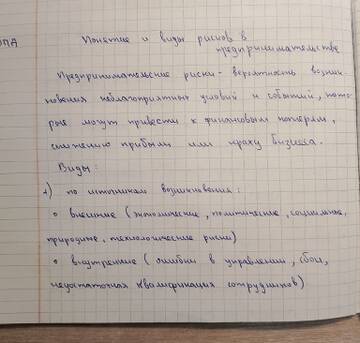 ОПД
Понятие и виды рисков в
предпринимательстве
Предпринимательские риски - вероятность возник-
новения неблагоприятных условий и событий, кото-
рые могут привести к финансовым потерям,
снижению прибыли или краху бизнеса.
Виды:
1) по источникам возникновения:
• внешние (экономические, политические, социальные,
природные, технологические риски)
• внутренние (ошибки в управлении, сбои,
недостаточная квалификация сотрудников)